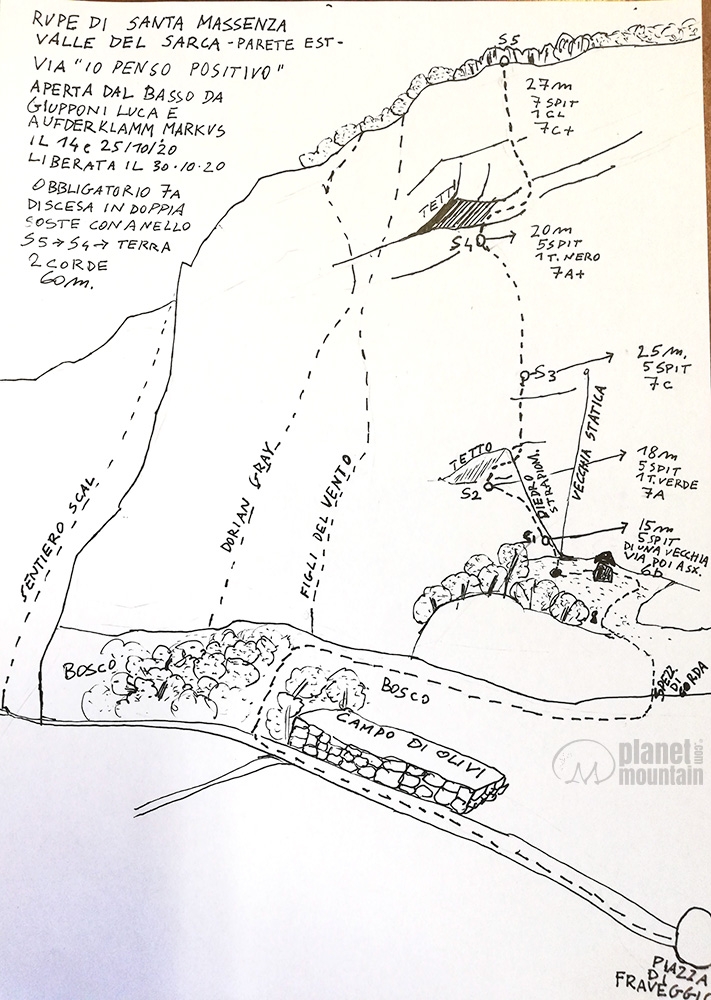 RUPE DI SANTA MASSENZA
VALLE DEL SARCA - PARETE EST -
VIA "IO PENSO POSITIVO"
APERTA DAL BASSO DA
GIUPPONI LUCA E
AUFDERKLAMM MARKUS
IL 14 e 25/10/20
LIBERATA IL 30·10·20
OBBLIGATORIO 7A
DISCESA IN DOPPIA
SOSTE CON ANELLO
S5 → S4 → TERRA
2 CORDE
60m.
S5
27m
7 SPIT
1 CL
7C+
TETTI
S4
20m
5 SPIT
1 T. NERO
7A+
S3
25m.
5 SPIT
7C
VECCHIA STATICA
TETTO
DIEDRO
STRAPIOM.
S2
18m
5 SPIT
1 T. VERDE
7A
S1
15m
5 SPIT
DI UNA VECCHIA
VIA POI A SX.
6b
SENTIERO SCAL
DORIAN GRAY
FIGLI DEL VENTO
BOSCO
BOSCO
SPEZZ.
DI
CORDA
CAMPO DI OLIVI
planet
mountain
.com
PIAZZA
DI
FRAVEGGIO